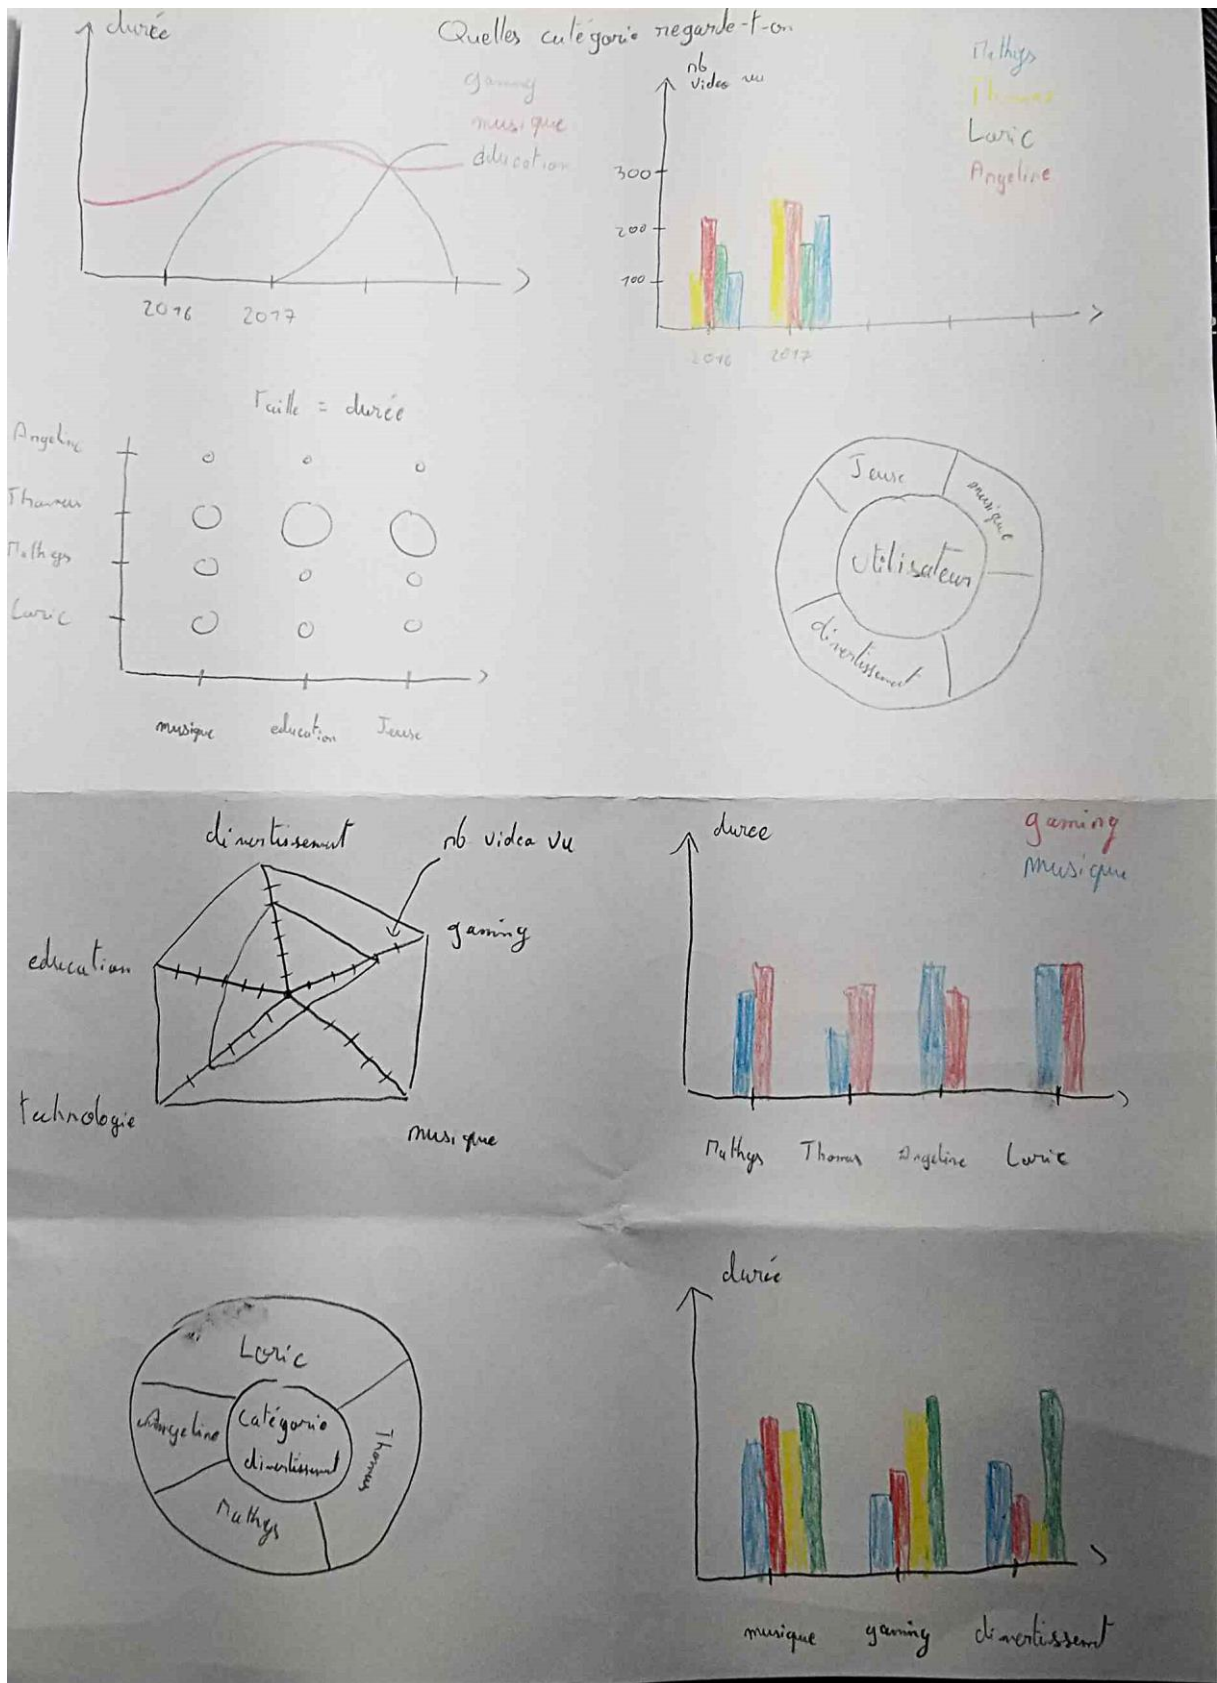 durée
Quelles catégorie regarde-t-on
gaming
musique
éducation
2016
2017
nb
video vu
Mathys
Thomas
Loric
Angeline
300
200
100
2016
2017
Taille = durée
Angeline
Thomas
Mathys
Loric
musique
education
Jeuse
Jeuse
musique
utilisateur
divertissement
divertissement
nb video vu
gaming
education
technologie
musique
duree
gaming
musique
Mathys
Thomas
Angeline
Loric
Loric
Angeline
Catégorie
divertissement
Thomas
Mathys
durée
musique
gaming
divertissent